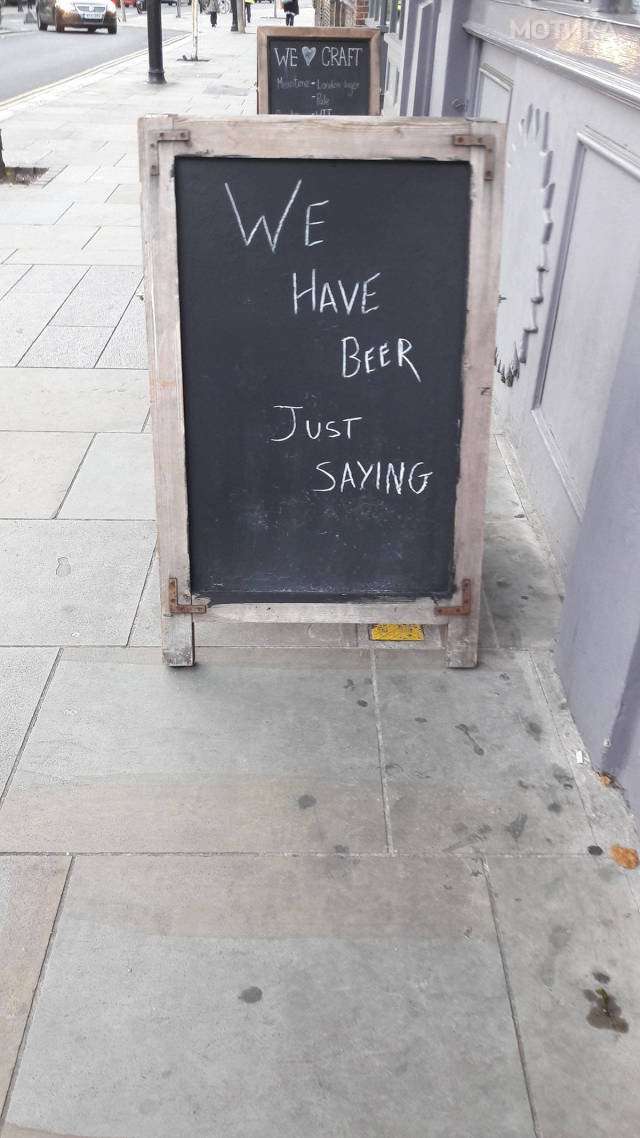 МОТИКА
WE ♥ CRAFT
Meantime - London lager
- Pale
WE
HAVE
BEER
JUST
SAYING